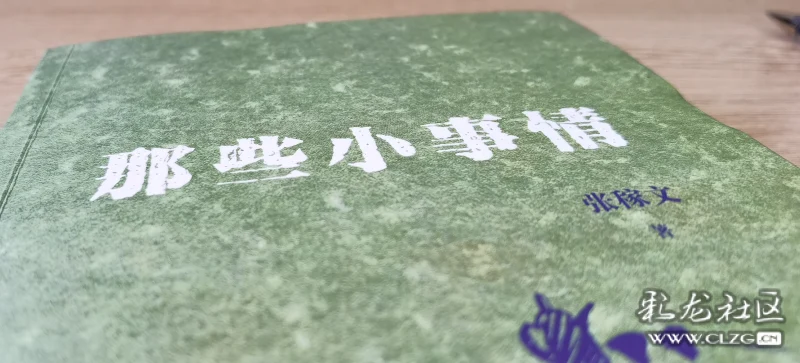 那些小事情
张稼文
著
彩龙社区
WWW.CLZG.CN